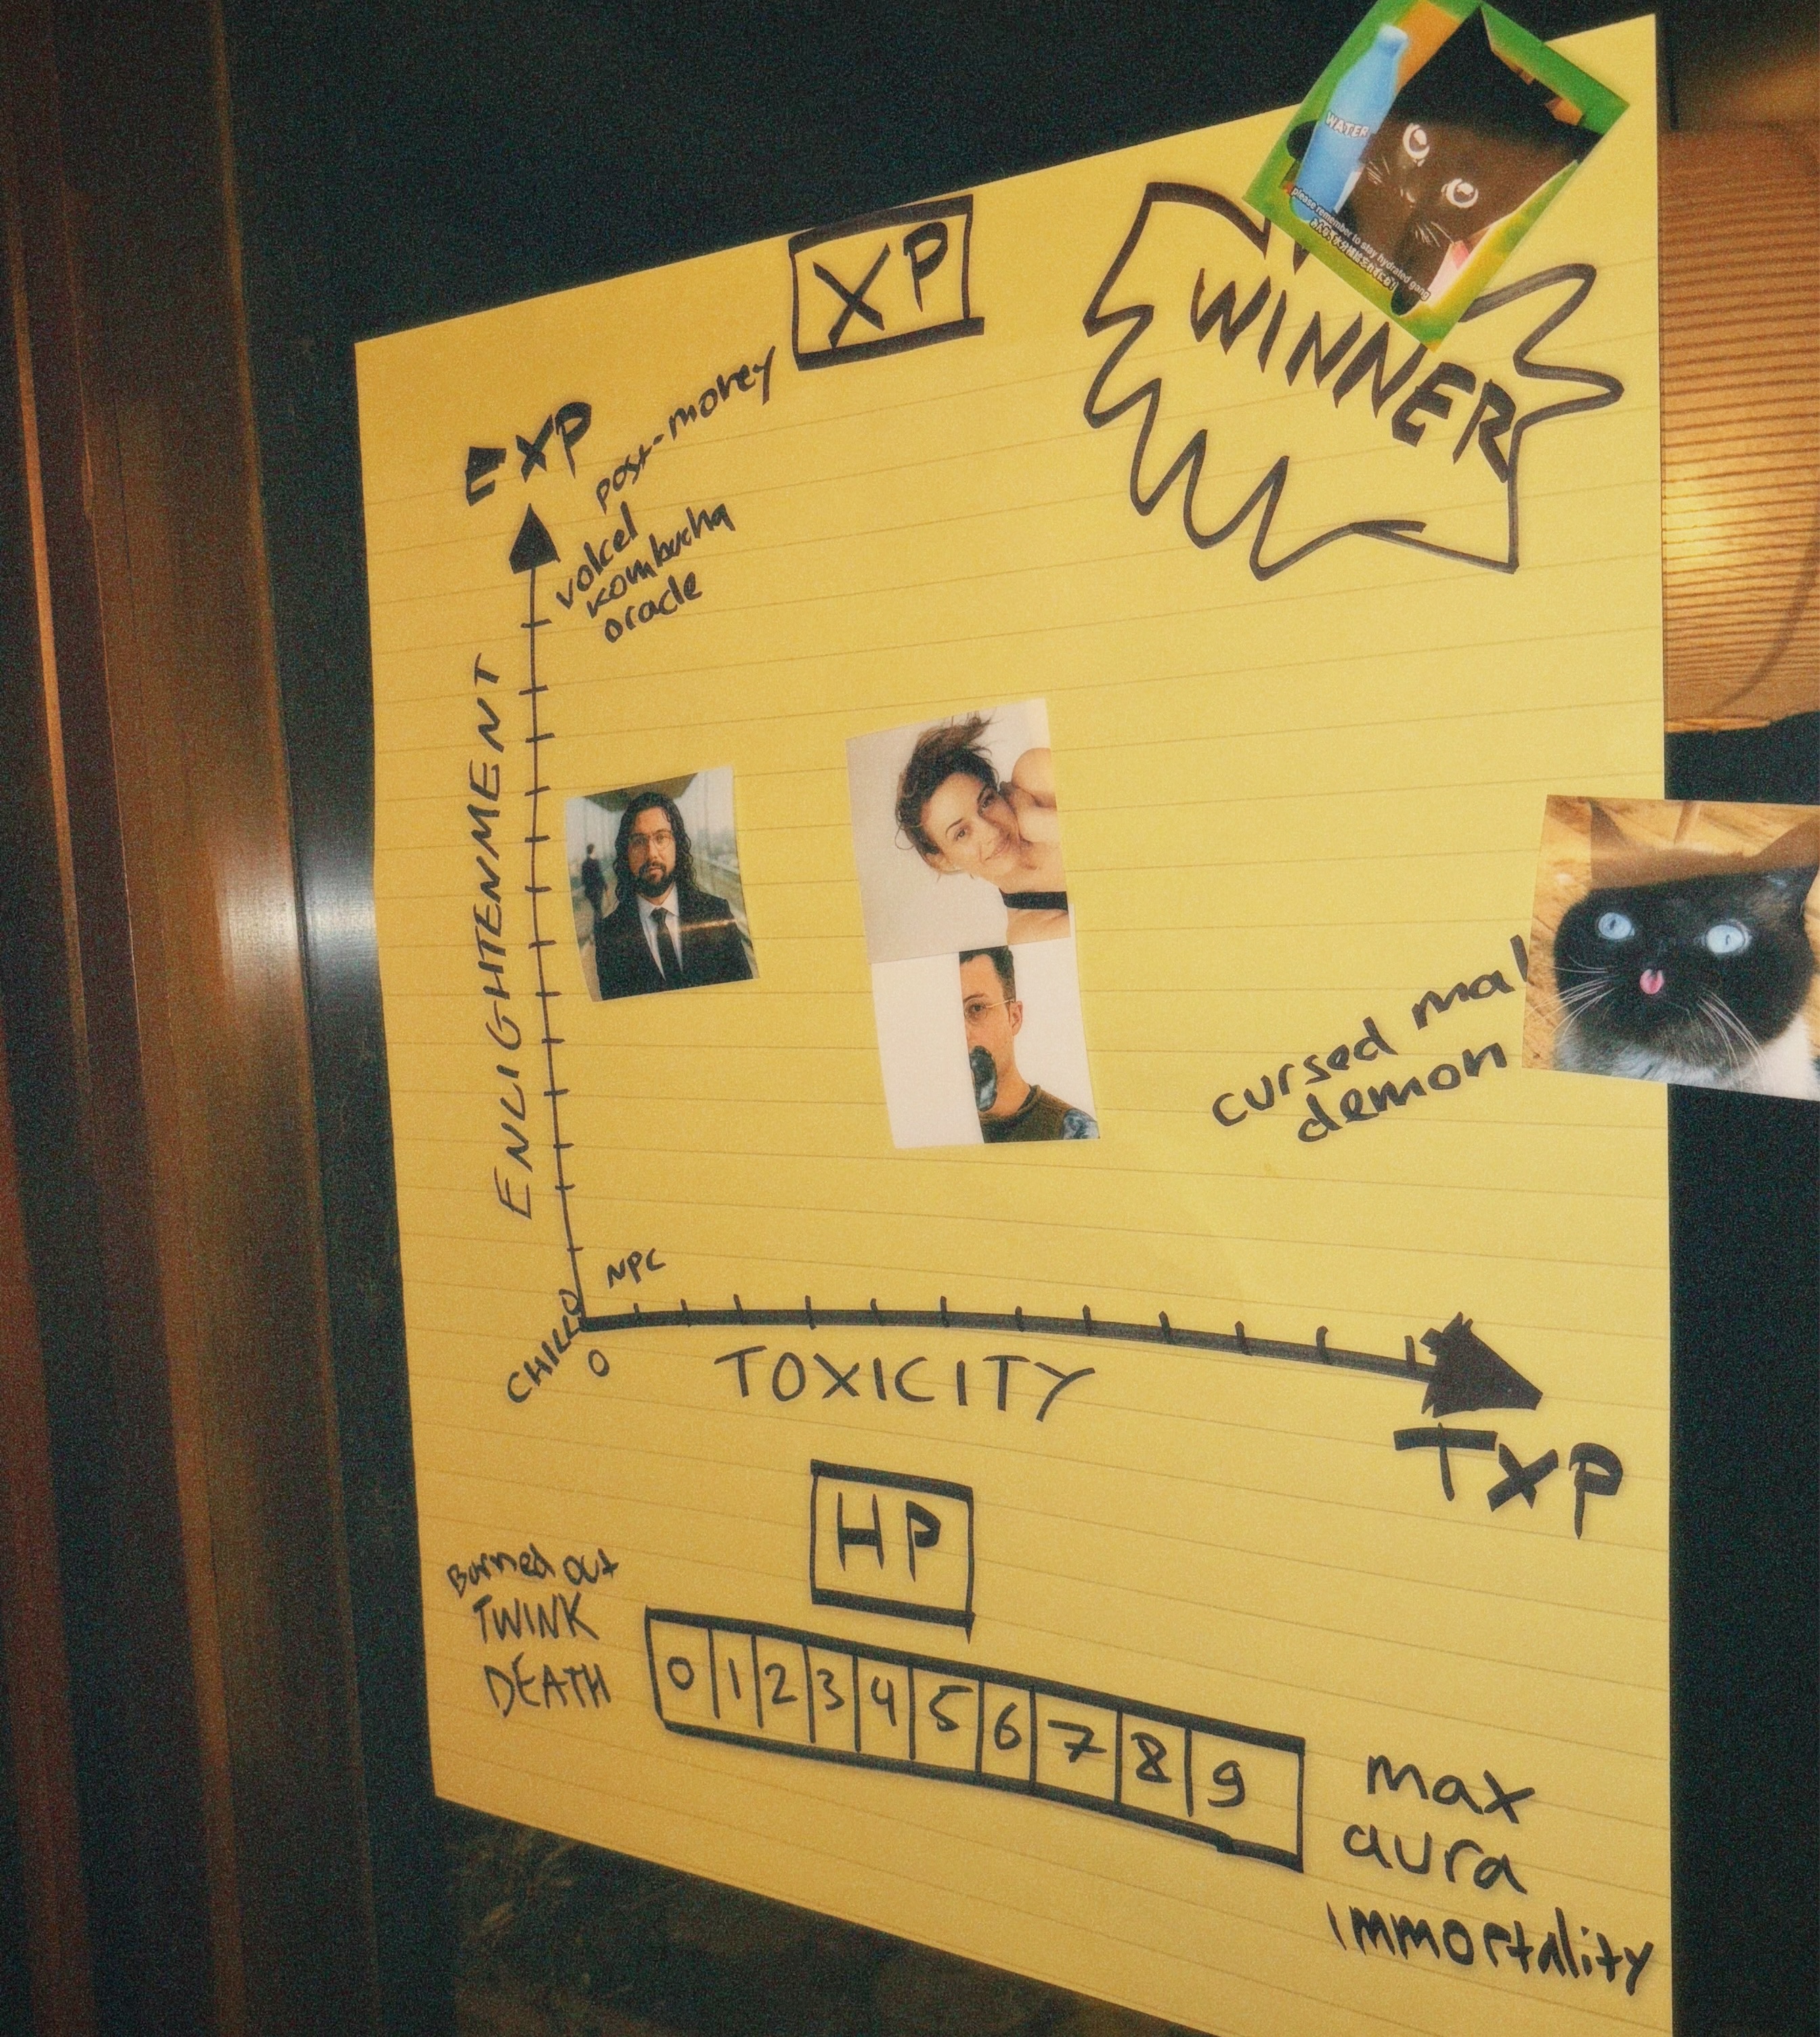 WATER
please remember to stay hydrated gang
XP
WINNER
EXP
post-money
volcel
kombucha
oracle
ENLIGHTENMENT
cursed mal
demon
NPC
CHILLO
0
TOXICITY
TXP
HP
Burned out
TWINK
DEATH
0 1 2 3 4 5 6 7 8 9
max
aura
immortality